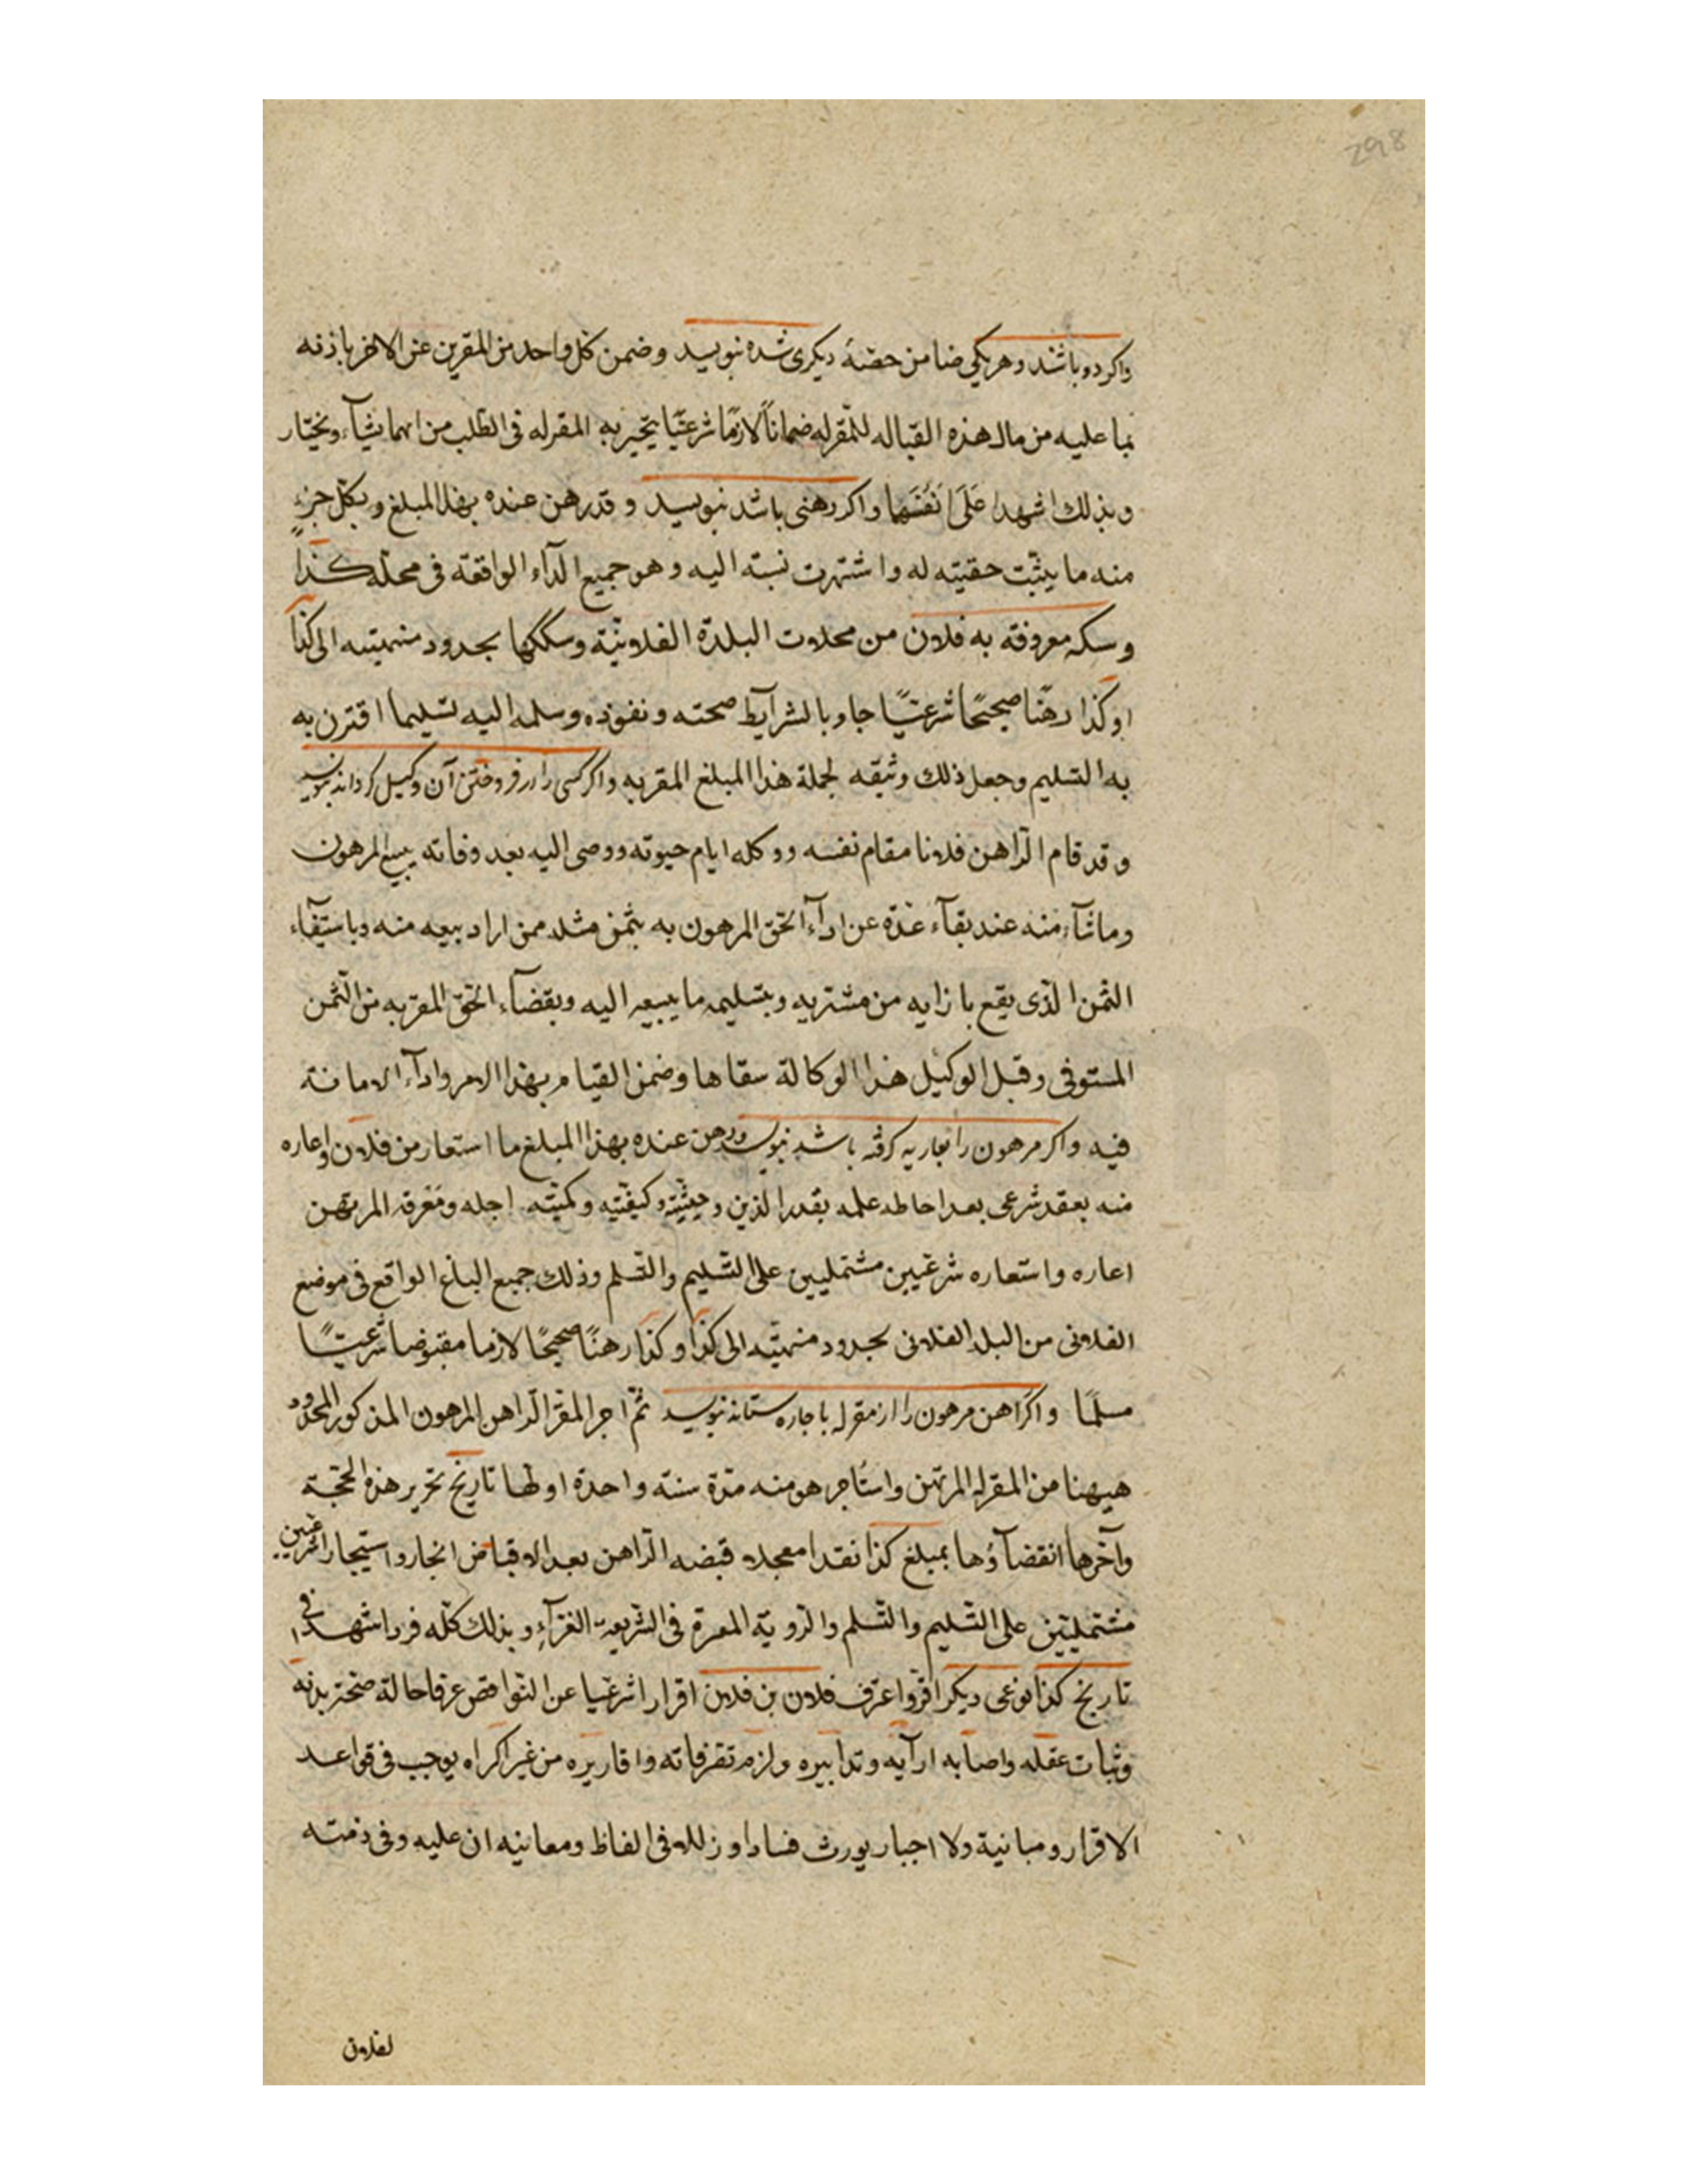 298
واکر دو باشند وهر یکی ضامن حصّهٔ دیکری شده بنویسد وضمن کل واحد من المقرین عن الاخر باذنه
بما علیه من مال هذه القباله للمقرله ضماناً لازمًا شرعیًا یتخیر به المقرله فی الطلب من ایهما یشآء ویختار
وبذلک اشهدا عَلَی نَفْسَهما واکر رهنی باشد بنویسد وقد رهن عنده بهذا المبلغ وبکل جزءٍ
منه ما یثبت حقیته له واشتهرت نسبته الیه وهو جمیع الدآر الواقعة فی محلّه کذا
وسکه معروفة به فلان من محلات البلدة الفلانیّة وسککها بحدود منتهیته الی کذا
او کذا رهنًا صحیحًا شرعیًّا حاویا لشرآیط صحته ونفوذه وسلمه الیه تسلیما اقترن به
به التسلیم وجعل ذلک وثیقه لجملة هذا المبلغ المقربه واکر کسی را در فروختن آن وکیل کرداند بنویسد
وقد قام الرّاهن فلانا مقام نفسه ووکله ایام حیوته ووصی الیه بعد وفاته ببیع المرهون
وماشآء منه عند بقآء عذّه عن ادآء الحق المرهون به بثمن مثله ممن اراد بیعه منه وباستیفآء
الثمن الّذی یقع بازایه من مشتریه وبتسلیمه ما یبیعه الیه وبقضآء الحق المقربه من الثّمن
المستوفی وقبل الوکیل هذا الوکالة سقاها وضمن القیام بهذا الامر وادآء الامانة
فیه واکر مرهون را بعاریه کرفته باشد بنویسد ورهن عنده بهذا المبلغ ما استعار من فلان واعاره
منه بعقد شرعی بعد احاطه علمه بقدر الدین وحیثیّته وکیفیّته وکمیّته اجله ومَعْرفه المرتهن
اعاره واستعاره شرعیین مشتملیین علی التسلیم والتسلم وذلک جمیع الباغ الواقع فی موضع
الفلانی من البلد الفلانی بحدود منتهیّه الی کذا وکذا رهنًا صحیحًا لازما مقبوضا شرعیّا
مسلمًا واکر راهن مرهون را از مقرله باجاره ستاند بنویسد ثمّ اجر المقر الرّاهن المرهون المذکور المحدود
هیهنا من المقرله المرتهن واستاجر هو منه مدّة سنة واحدة اولها تاریخ تحریر هذه الحجّة
وآخرها انقضآؤها بمبلغ کذا نقدا معجلا قبضه الرّاهن بعد الاقباض انجار واستیجارا شرعیین
مشتملیّین علی التّسلیم والتّسلم والرّویّه المعرة فی الشریعة الغرّآء وبذلک کلّه فردا شهدا فی
تاریخ کذا نوعی دیکر اقرّ واعترف فلان بن فلان اقرارا شرعیا عن النواقص عرفا حالة صحّة بدنه
وثبات عقله واصابه ارآیه وتدابیره ولزم تقرفاته واقاریره من غیر اکراه یوجب فی قواعد
الاقرار ومبانیة ولا اجبار یورث فسادا وزللا فی الفاظ ومعانیه ان علیه وفی ذمته
لفلان